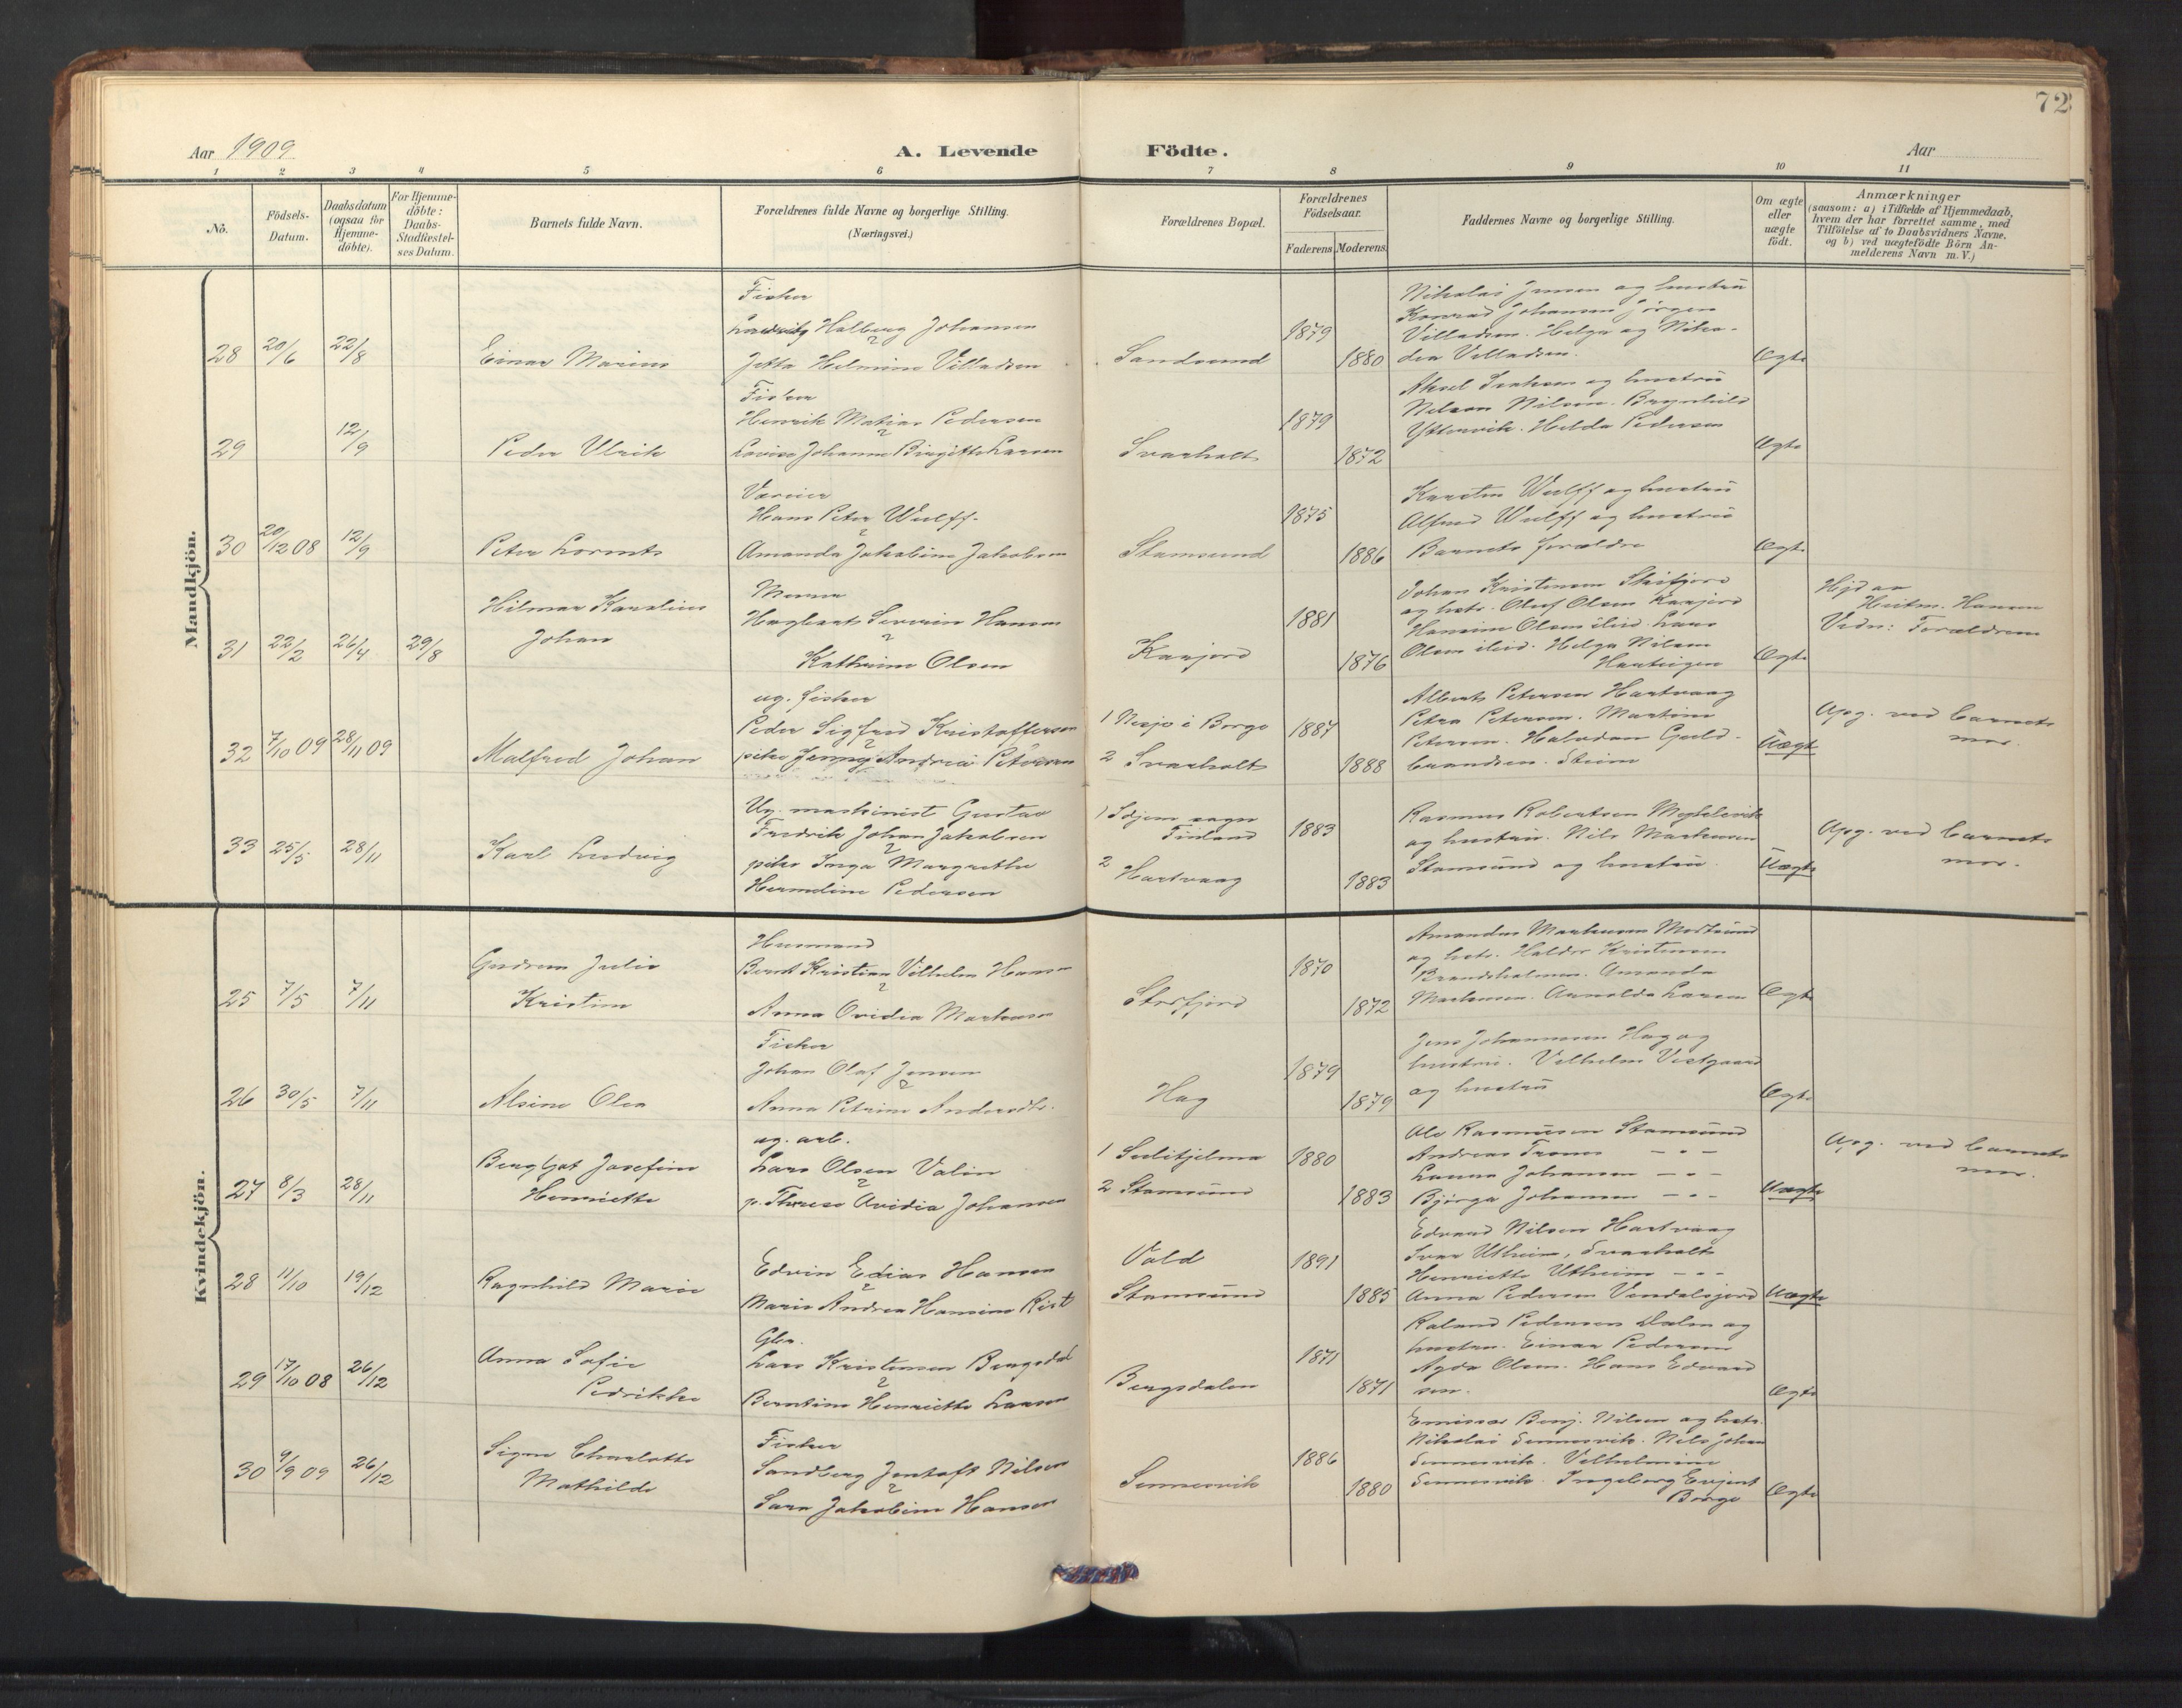 72
Aar 1909
A. Levende Födte.
Aar
1 2 3 4 5 6 7 8 9 10 11
No.
Födsels-Datum.
Daabsdatum (ogsaa for Hjemme-döbte).
For Hjemme-döbte: Daabs-Stadfæstel-ses Datum.
Barnets fulde Navn.
Forældrenes fulde Navne og borgerlige Stilling.
(Næringsvei.)
Forældrenes Bopæl.
Forældrenes Födselsaar.
Faderens Moderens
Faddernes Navne og borgerlige Stilling.
Om ægte eller uægte födt.
Anmærkninger
(saasom: a) i Tilfælde af Hjemmedaab,
hvem der har forrettet samme, med
Tilföielse af to Daabsvidners Navne,
og b) ved uægtefödte Börn An-
melderens Navn m. V.)
Mandkjön.
28 20/6 22/8
Einar Marius
Fisker
Holberg Johansen
Jetta Helmine Villadsen
Sandsund
1879
1880
Nikolai Jensen og hustru
Konrad Johansen Jørgen
Villadsen. Helga og Niko-
dea Villadsen.
Ægte
29 12/9
Peder Ulrik
Fisker
Henrik Matias Pedersen
Lovise Johanne Birgitte Larsen
Svarholt
1879
1872
Aksel Isaksen og hustru
Nelson Nilsen. Brynhild
Yttervik. Helda Pedersen
Ægte
30 20/12 08 12/9
Peter Lorents
Hans Peter Wulff.
Amanda Jakobine Jakobsen
Stamsund
1875
1886
Karsten Wulff og hustru
Alfred Wulff og hustru
Barnets forældre
Ægte
31 22/2 26/4 29/8
Hilmar Karelius
Johan
Hagbart Severin Hansen
Kathrine Olsen
Kaajord
1881
1876
Johan Kristensen Skifjord
og hstr. Oluf Olsen Kaajord
Hansine Olsen ibid. Lars
Olsen ibid. Helga Nilsen
Hartvigen
Ægte
Hjd av
Heitm. Hansen
Vidn: Forældrene
32 7/10 09 28/11 09
Malfred Johan
ug. fisker
Peder Sigfred Kristoffersen
pike Jenny Andrea Petersen
1 Nesje i Borge
2 Svarholt
1887
1888
Albert Petersen Hartvaag
Petra Petersen. Martine
Petersen. Halvdan Guld-
brandsen. Steine
Uægte
Opg. ved barnets
mor.
33 25/5 28/11
Karl Ludvig
Ug. maskinist Gustav
Fredrik Johan Jakobsen
pike Inga Margrethe
Hermeline Pedersen
1 sogn
Finland
2
Hartvaag
1883
1883
Rasmus Robertsen
og hustru. Nils Markussen
Stamsund og hustru
Uægte
Opg. ved barnets
mor.
Kvindekjön.
25 7/5 7/11
Gudrun Julie
Kristine
Husmand
Bernt Kristian Vilhelm Hansen
Anna Ovidia Markussen
Storfjord
1870
1872
Amandus Markussen Mortsund
og hstr. Haldor Kristensen
Brandsholmen. Amanda
Markussen. Arnolda Larsen
Ægte
26 30/5 7/11
Alsine Olea
Fisker
Johan Olaf Jensen
Anna Petrine Andersdtr.
Hag
1879
1879
Jens Johannesen Hag og
hustru. Vilhelm Vestgaard
og hustru
Ægte
27 8/3 28/11
Bergljot Josefine
Henriette
ug. arb.
Lars Olsen Valin
p. Therese Ovidia Johansen
1 Sulitjelma
2 Stamsund
1880
1883
Ole Rasmussen Stamsund
Andreas Tromes — " —
Laura Johansen — " —
Bjørga Johansen — " —
Uægte
Opg. ved barnets
mor.
28 11/10 19/12
Ragnhild Marie
Edvin Edias Hansen
Marie Andrea Hansine Rist
Vold
Stamsund
1891
1885
Edvard Nilsen Hartvaag
Ivar Utheim, Svarholt
Henriette Utheim — " —
Anna Pedersen Vendalsjord
Uægte
29 17/10 08 26/12
Anna Sofie
Pedrikke
Gbr.
Lars Kristensen Bergsdal
Berntine Henriette Larsen
Bergsdalen
1871
1871
Roland Pedersen Dalen og
hustru. Einar Pedersen
Agda Olsen. Hans Edvard
sen.
Ægte
30 9/9 09 26/12
Signe Charlotte
Mathilde
Fisker
Sandberg Jentoft Nilsen
Sara Jakobine Hansen
Sennesvik
1886
1880
Emissær Benj. Nilsen og hstr.
Nikolai Sennesvik. Nils Johan
Sennesvik. Vilhelmine
Sennesvik. Ingeborg Evjent
Borge
Ægte